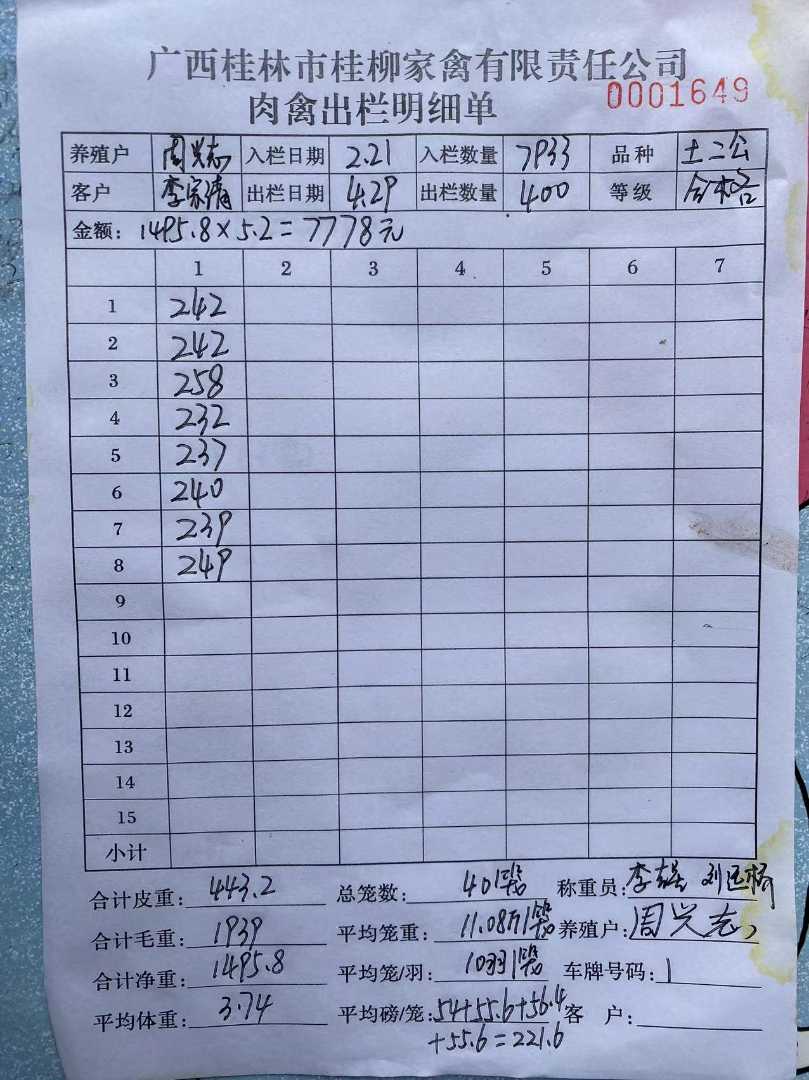 广西桂林市桂柳家禽有限责任公司
肉禽出栏明细单 0001649
养殖户 周兴志 入栏日期 2.21 入栏数量 7933 品种 土二公
客户 李家清 出栏日期 4.29 出栏数量 400 等级 合格
金额: 1495.8×5.2=7778元
1 2 3 4 5 6 7
1 242
2 242
3 258
4 232
5 237
6 240
7 239
8 249
9
10
11
12
13
14
15
小计
合计皮重: 443.2 总笼数: 40 称重员: 李
合计毛重: 1939 平均笼重: 11.08 养殖户: 周兴志
合计净重: 1495.8 平均笼/羽: 10 车牌号码:
平均体重: 3.74 平均磅/笼: 54+55.6+56.4 客 户:
+55.6=221.6